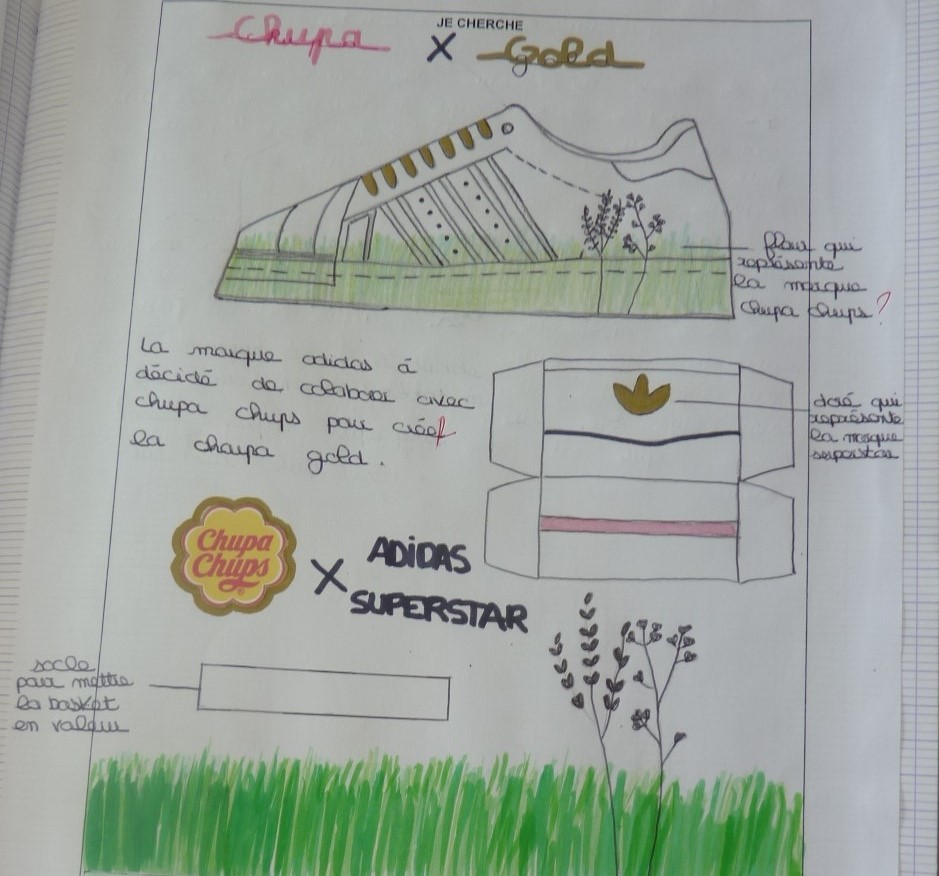 JE CHERCHE
Chupa X Gold
fleur qui
représente
la marque
chupa chups ?
La marque adidas á
décidé de colaborer avec
chupa chups pour créer
la chaupa gold.
doré qui
représente
la marque
superstar
Chupa
Chups
®
X ADIDAS
SUPERSTAR
socle
pour mettre
la basket
en valeur